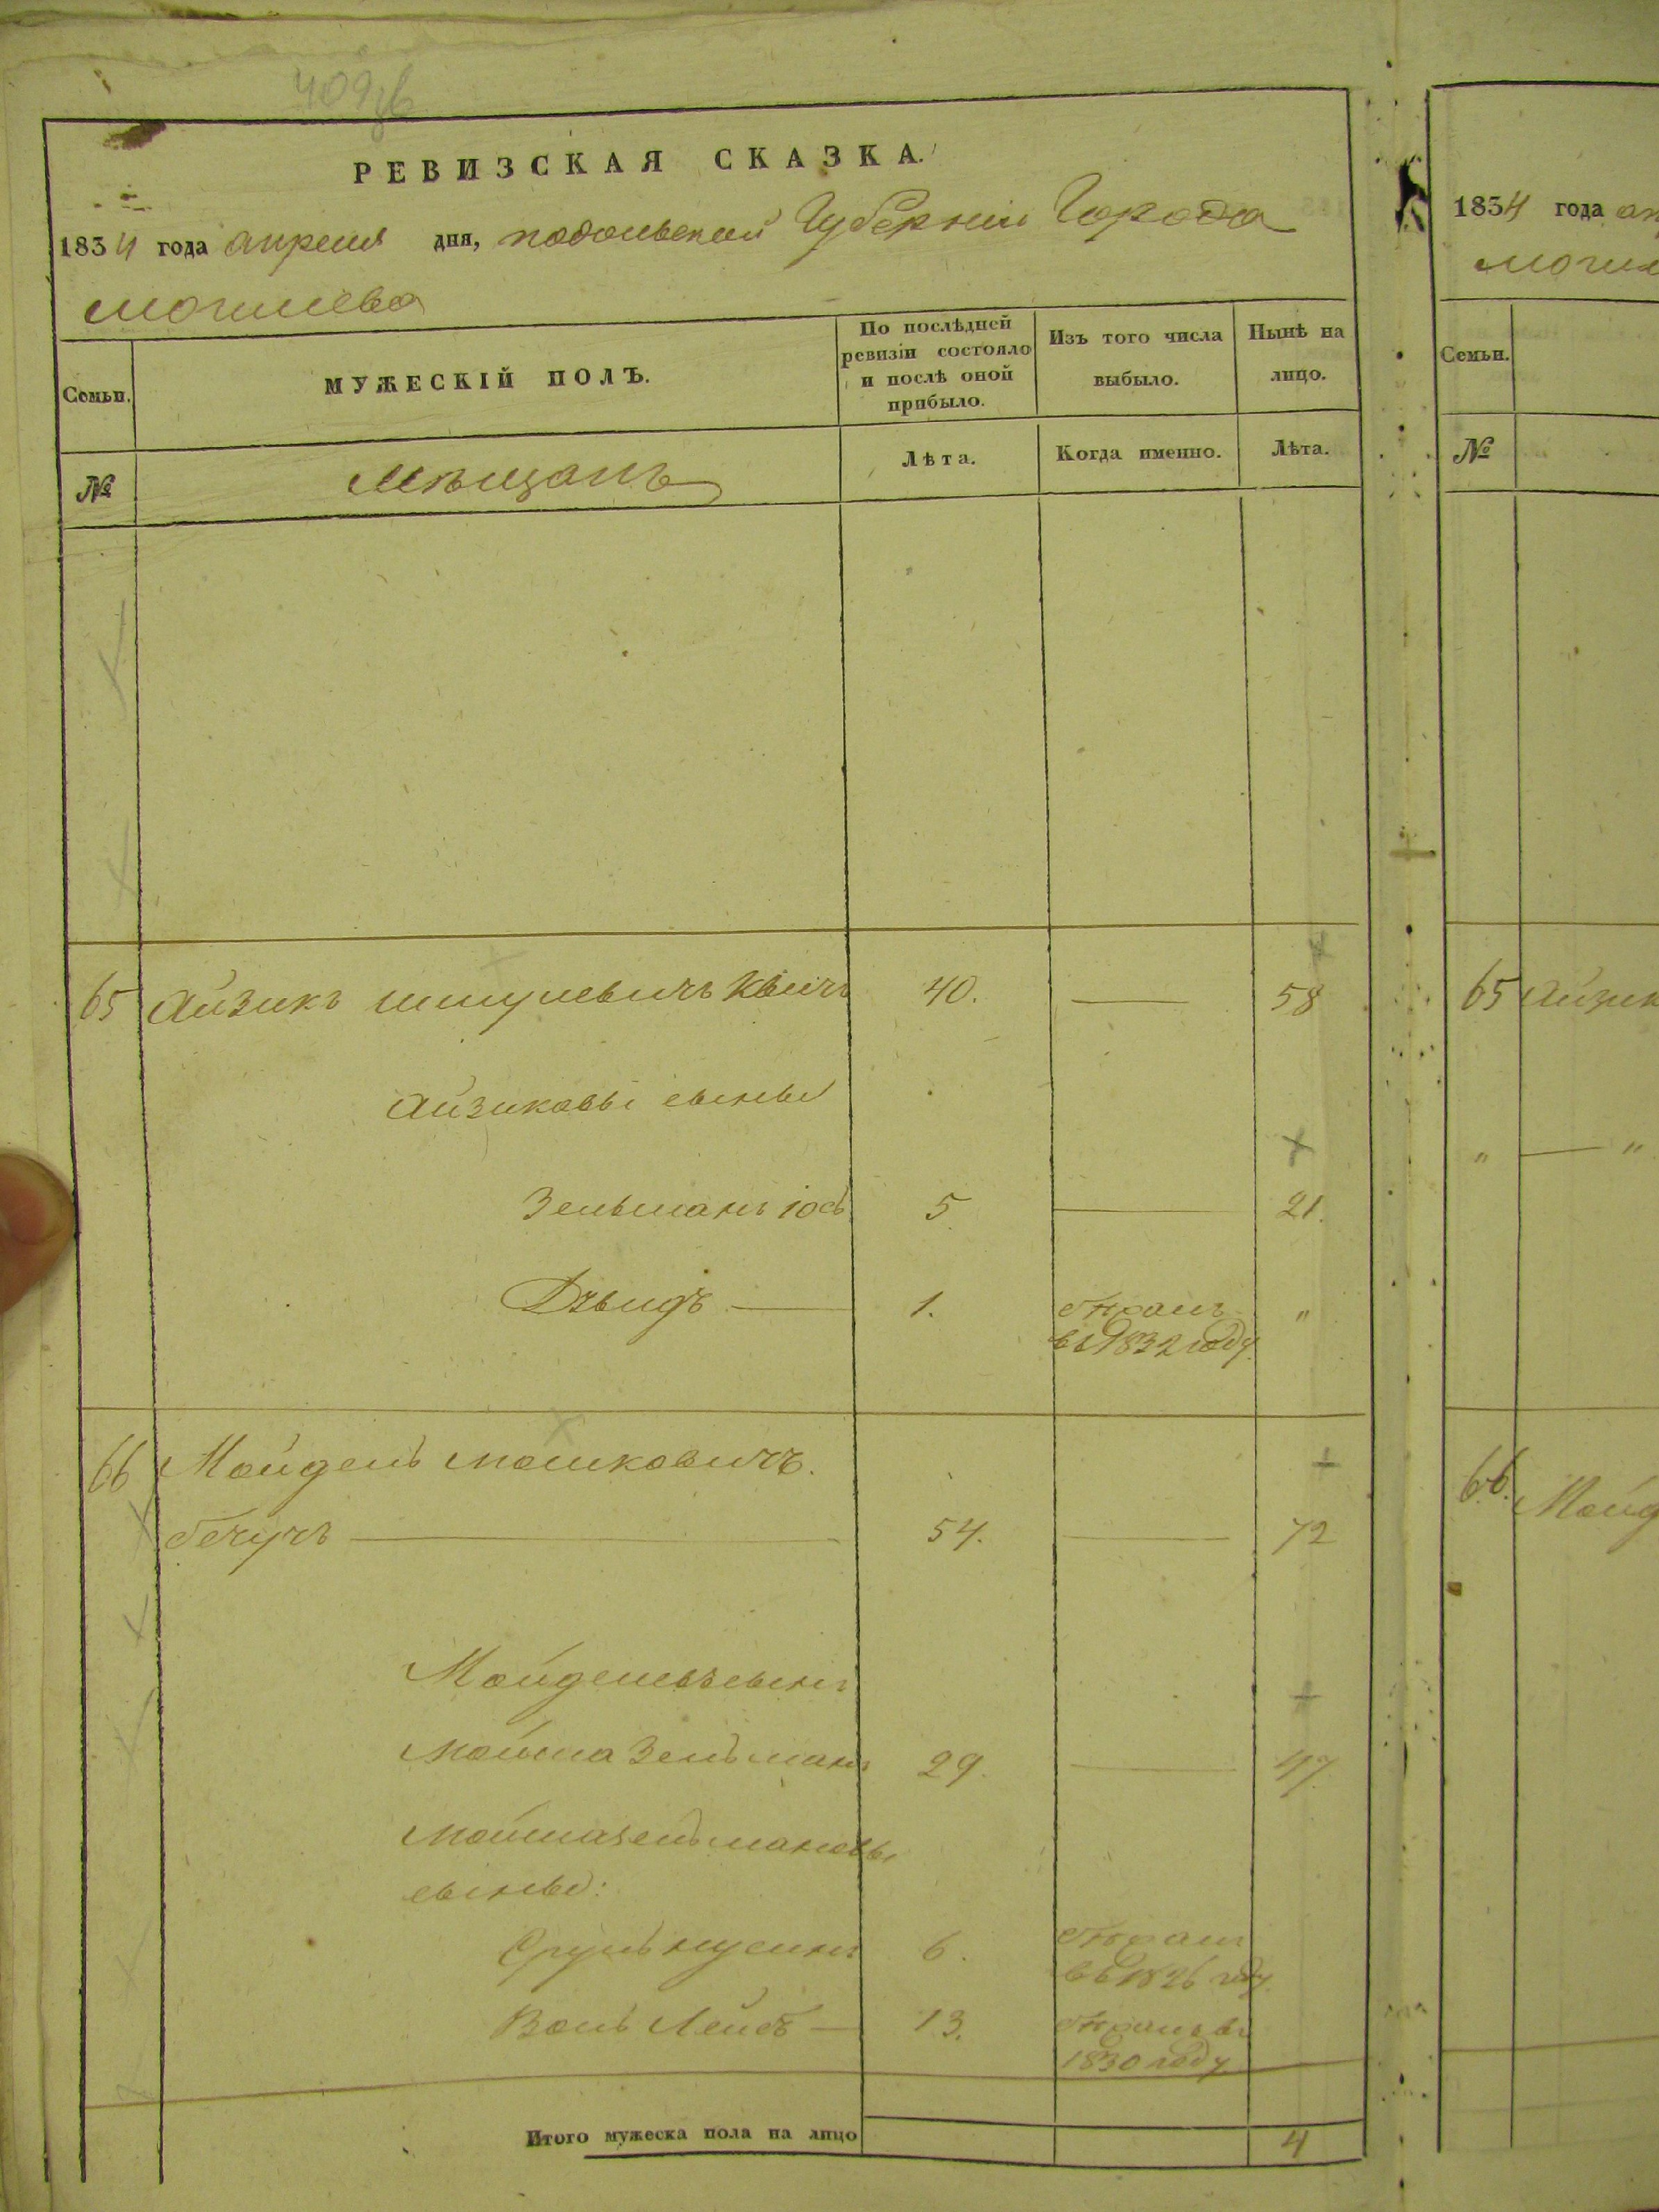 409зв
РЕВИЗСКАЯ СКАЗКА.
1834 года апреля дня, подольской Губернiи Города
могилева
Семьи.
МУЖЕСКIЙ ПОЛЪ.
По послѣдней ревизiи состояло и послѣ оной прибыло.
Изъ того числа выбыло.
Нынѣ на лицо.
№
Мѣщанъ
Лѣта.
Когда именно.
Лѣта.
65 Айзикъ шмулевичъ 40. — 58
Айзиковы сыны
Зельманъ iось 5 — 21.
Дувидъ — 1. "
въ 1832 году
66 Мойдель мошковичъ.
— 54. — 72
Мойделевъ сынъ
Мойша Зельманъ 29. — 47
Мойшазельмановы
сыны:
Сруль нусинъ 6.
въ 1826 году
Воль Лейбъ — 13.
1830 году
Итого мужеска пола на лицо 4
1834 года ап
могил
Семьи.
№
65 Айзик
" — "
66. Мойд